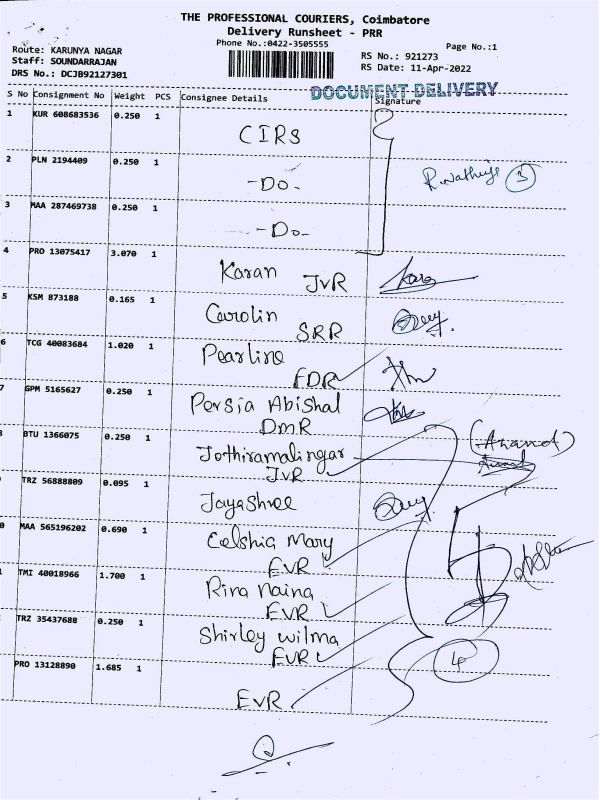 THE PROFESSIONAL COURIERS, Coimbatore
Delivery Runsheet - PRR
Phone No.:0422-3505555
Page No.:1
Route: KARUNYA NAGAR
Staff: SOUNDARRAJAN
DRS No.: DCJB92127301
RS No.: 921273
RS Date: 11-Apr-2022
DOCUMENT DELIVERY
S No Consignment No Weight PCS Consignee Details Signature
1 KUR 608683536 0.250 1 CIRS
2 PLN 2194409 0.250 1 -Do- 3
3 MAA 287469738 0.250 1 -Do-
4 PRO 13075417 3.070 1 Karan JVR
5 KSM 873188 0.165 1 Carolin SRR
6 TCG 40083684 1.020 1 Pearline FDR
7 GPM 5165627 0.250 1 Persia Abishal DMR
BTU 1366075 0.250 1 Jothiramalingar JVR (Anand)
TRZ 56888809 0.095 1 Jayashree
MAA 565196202 0.690 1 Celshia Mary EVR
TMI 40018966 1.700 1 Rina Naina EVR
TRZ 35437688 0.250 1 Shirley Wilma EVR
PRO 13128890 1.685 1 EVR
4